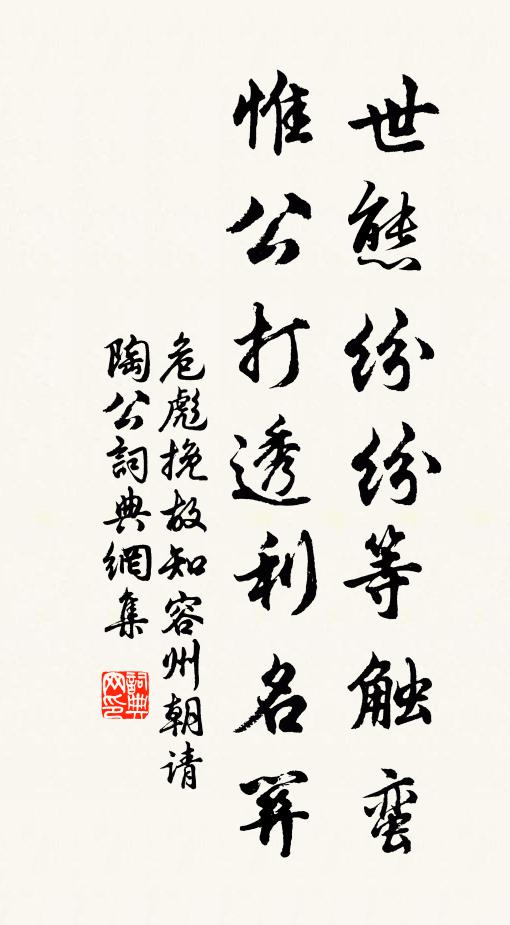 世態紛紛等触蛮
惟公打透利名關
危彪挽故知容州朝请
陶公詞典網集
詞典
网印